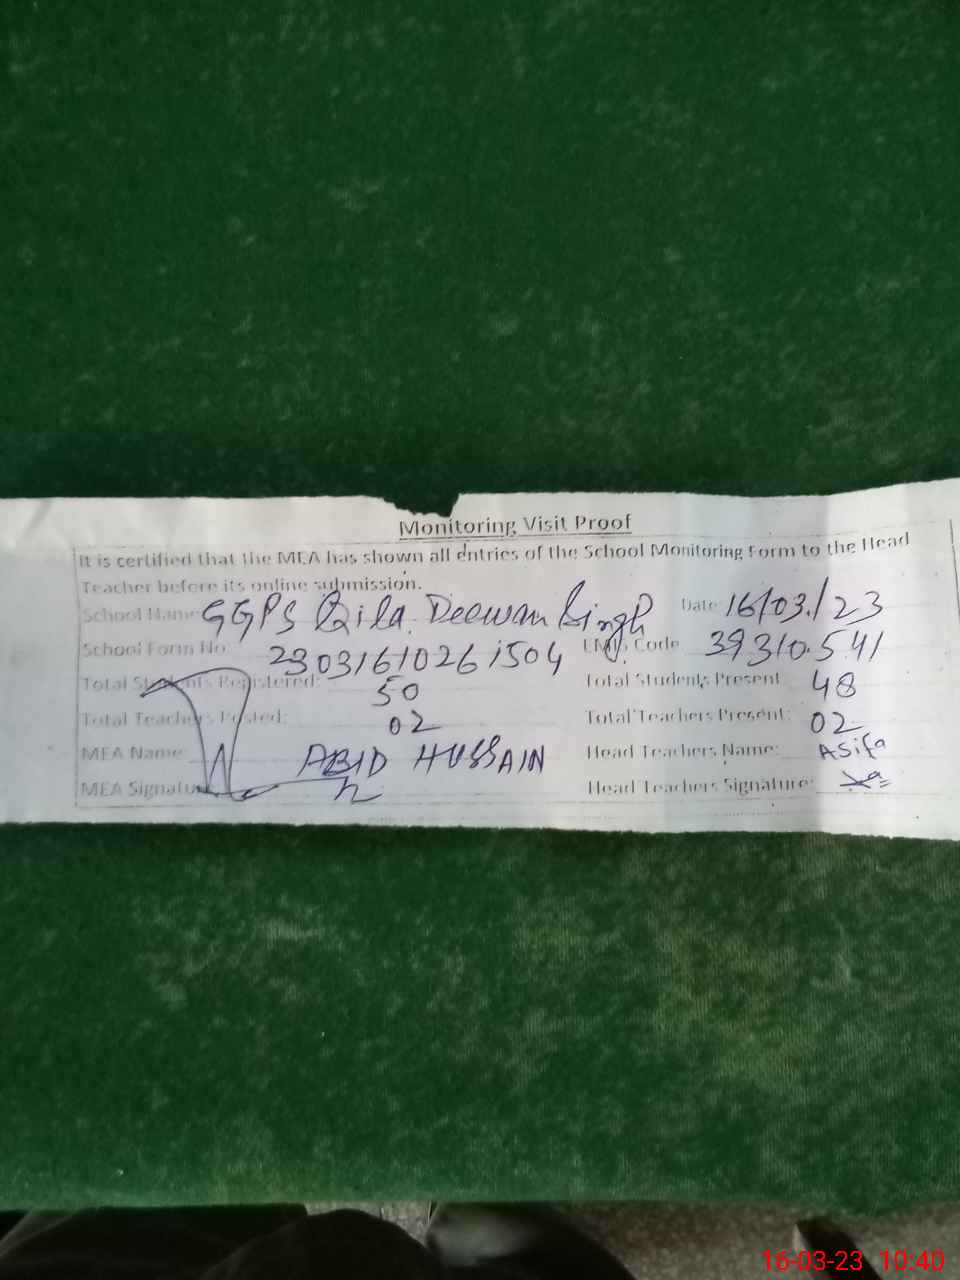 Monitoring Visit Proof
It is certified that the MEA has shown all entries of the School Monitoring Form to the Head
Teacher before its online submission.
School Name GGPS Qila Deewan Singh Date 16/03/23
School Form No 23031610261504 EMIS Code 39310541
Total Students Registered: 50 Total Students Present 48
Total Teachers Posted: 02 Total Teachers Present: 02
MEA Name: ABID HUSSAIN Head Teachers Name: Asifa
MEA Signature Head Teachers Signature:
16-03-23 10:40